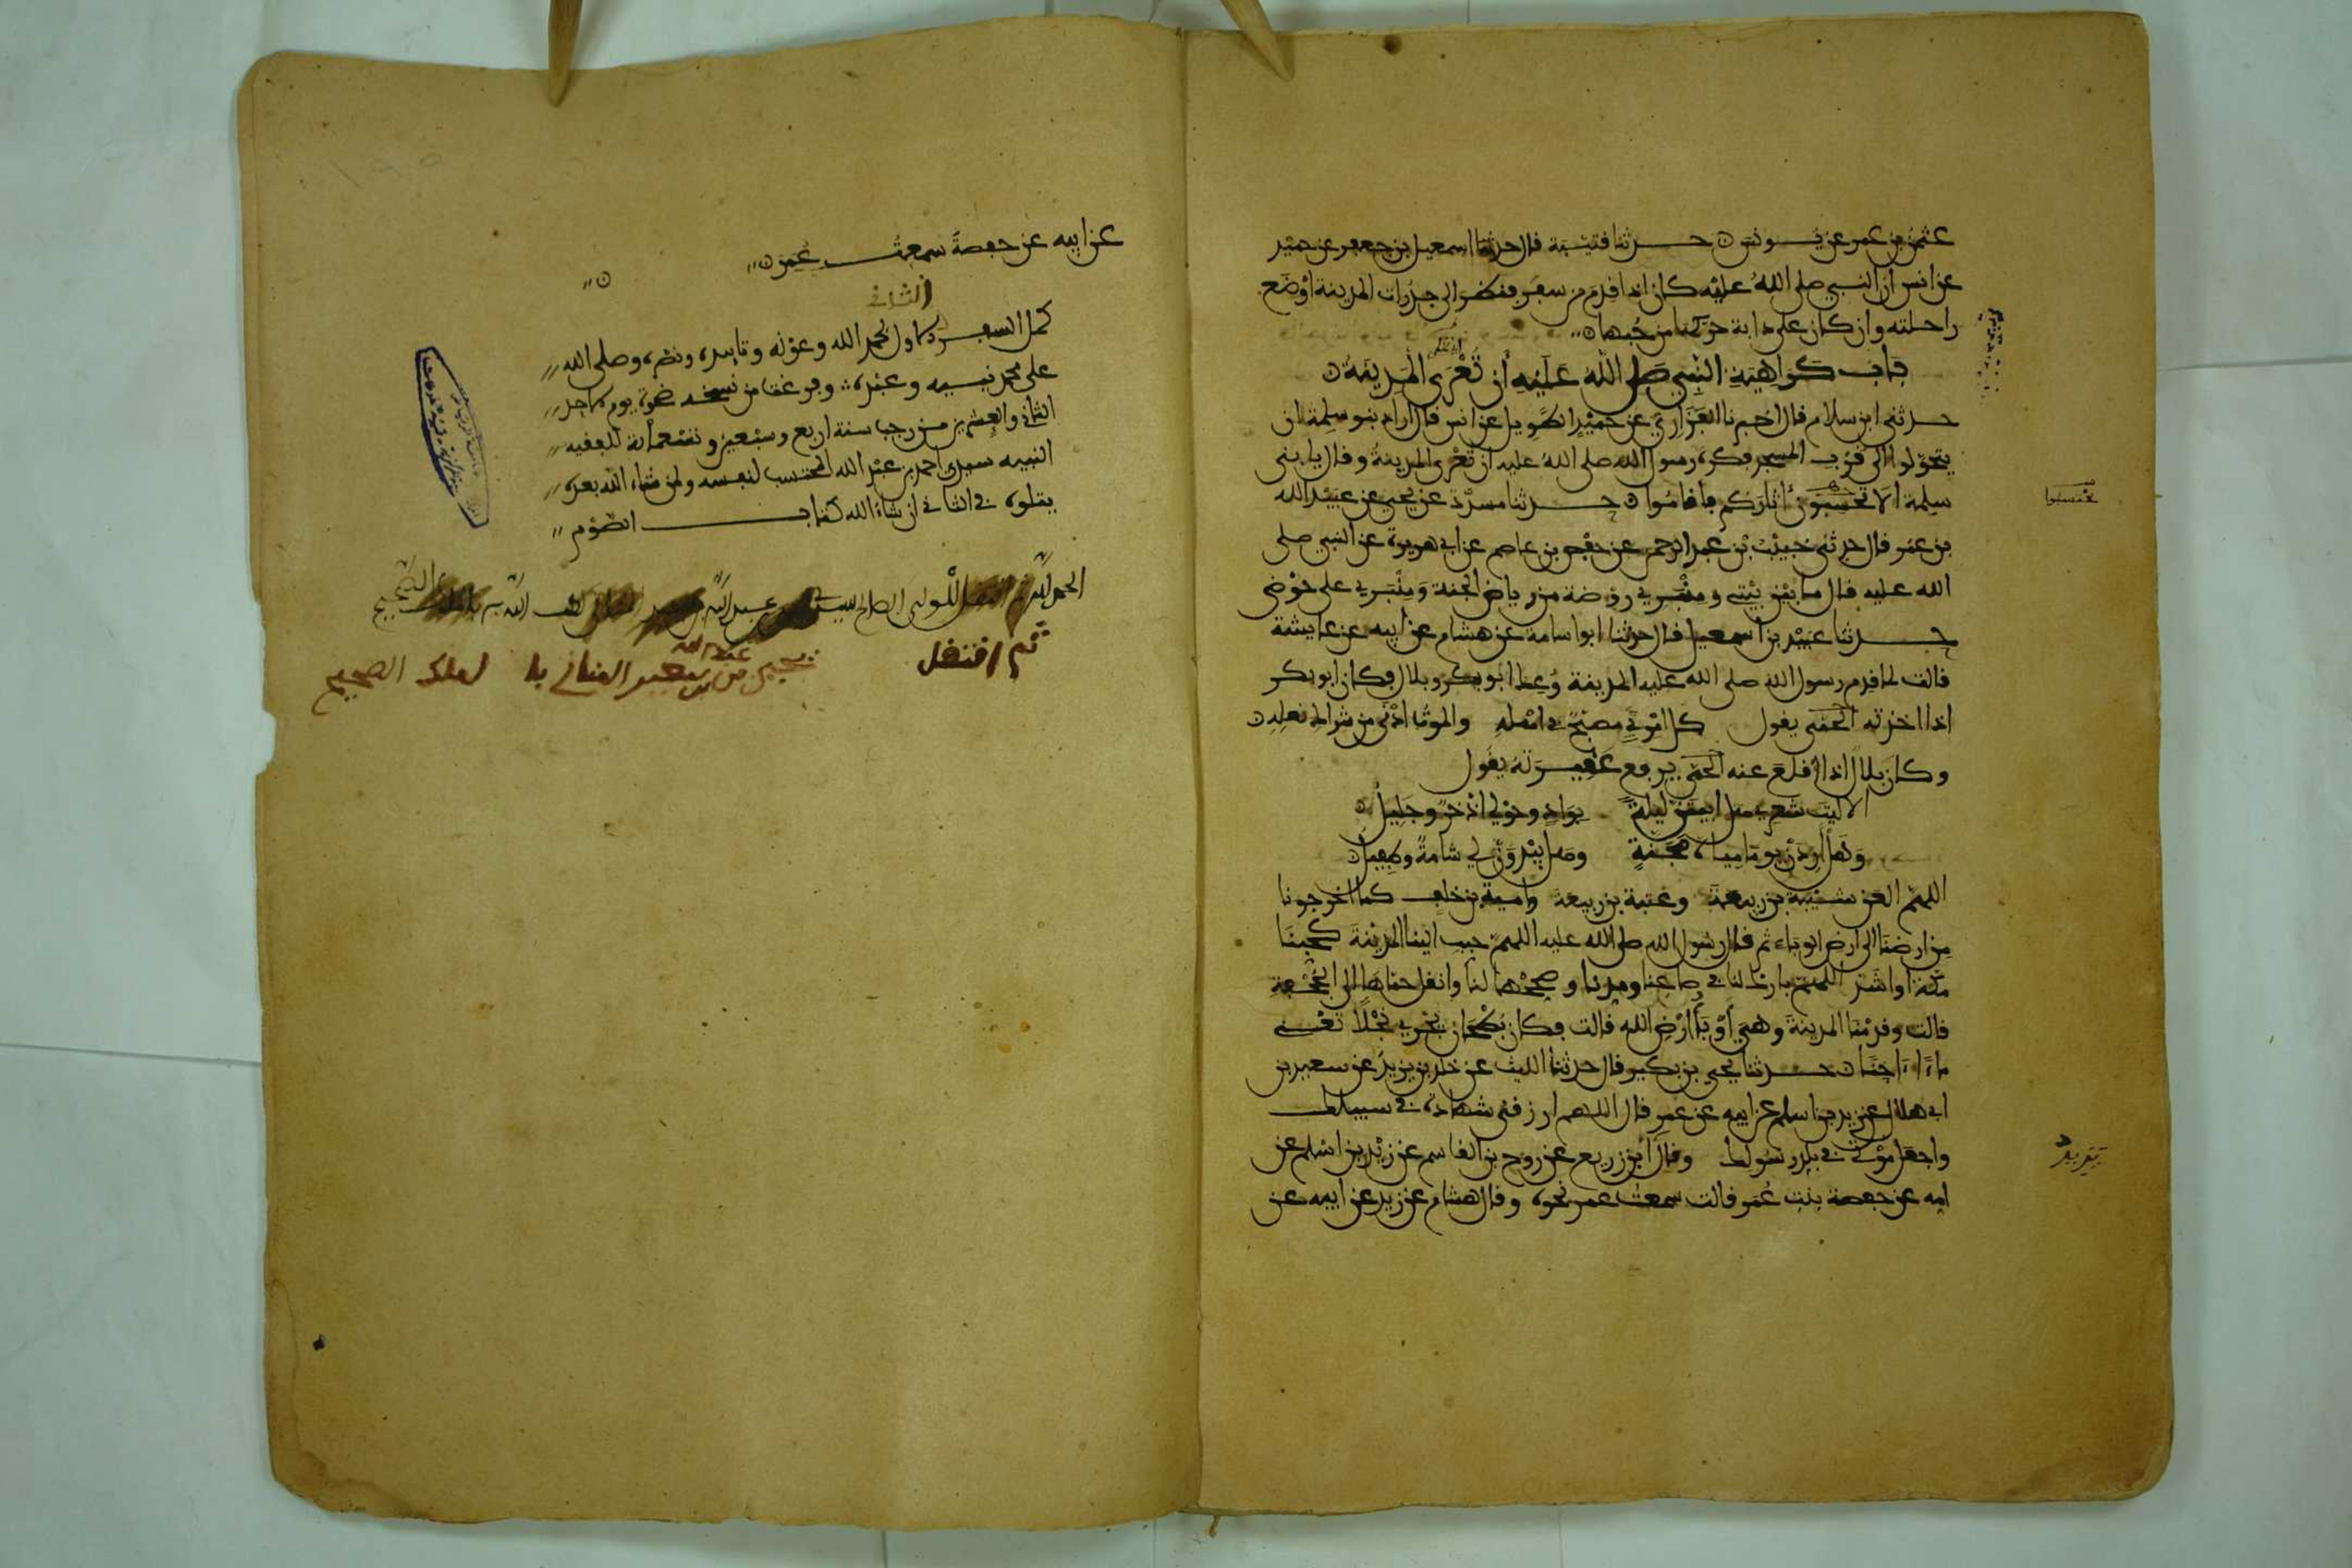 عثمن بن عمر عن يونس حدثنا قتيبة قال حدثنا اسمعيل بن جعفر عن حميد
عن انس ان النبي صلى الله عليه كان اذا قدم من سفر فنظر الى جدرات المدينة اوضع
راحلته وان كان على دابة حركها من حبها
باب كراهية النبي صلى الله عليه أن تعرى المدينة
حدثني ابن سلام قال اخبرنا الفزاري عن حميد الطويل عن انس قال اراد بنو سلمة ان
يتحولوا الى قرب المسجد فكره رسول الله صلى الله عليه ان تعرى المدينة وقال يا بني
سلمة الا تحتسبون اثاركم فاقاموا حدثنا مسدد عن يحيى عن عبيد الله
تحتسبوا
بن عمر قال حدثني خبيب بن عبد الرحمن عن حفص بن عاصم عن ابي هريرة عن النبي صلى
الله عليه قال ما بين بيتي ومنبري روضة من رياض الجنة ومنبري على حوضي
حدثنا عبيد بن اسمعيل قال حدثنا ابو اسامة عن هشام عن ابيه عن عايشة
قالت لما قدم رسول الله صلى الله عليه المدينة وعك ابو بكر وبلال فكان ابو بكر
اذا اخذته الحمى يقول كل امرئ مصبح في اهله والموت ادنى من شراك نعله
وكان بلال اذا اقلع عنه الحمى يرفع عقيرته يقول
الا ليت شعري هل ابيتن ليلة بواد وحولي اذخر وجليل
وهل أردن يوما مياه مجنة وهل يبدون لي شامة وطفيل
اللهم العن شيبة بن ربيعة وعتبة بن ربيعة وامية بن خلف كما اخرجونا
من ارضنا الى ارض الوباء ثم قال رسول الله صلى الله عليه اللهم حبب الينا المدينة كحبنا
مكة او اشد اللهم بارك لنا في صاعنا ومدنا وصححها لنا وانقل حماها الى الجحفة
قالت وقدمنا المدينة وهي أوبأ أرض الله قالت فكان بطحان يجري نجلا تعني
ماء اجنا حدثنا يحيى بن بكير قال حدثنا الليث عن خلد بن يزيد عن سعيد بن
ابي هلال عن زيد بن اسلم عن ابيه عن عمر قال اللهم ارزقني شهادة في سبيلك
واجعل موتي في بلد رسولك وقال ابن زريع عن روح بن القاسم عن زيد بن اسلم عن
امه عن حفصة بنت عمر قالت سمعت عمر نحوه وقال هشام عن زيد عن ابيه عن
عن ابيه عن حفصة سمعت عمر
الثاني
كمل السفر الاول بحمد الله وعونه وتاييده ونصره وصلى الله
على محمد نبيه وعبده وفرغت من نسخه ضحوة يوم الاحد
الثاني والعشرين من رجب سنة اربع وسبعين وتسعمائة للفقيه
النبيه سيدي احمد بن عبد الله المحتسب لنفسه ولمن شاء الله بعده
يتلوه في الثاني ان شاء الله كتاب الصوم
الحمد لله
ثم انتقل
عبد الله
لملك الصحيح